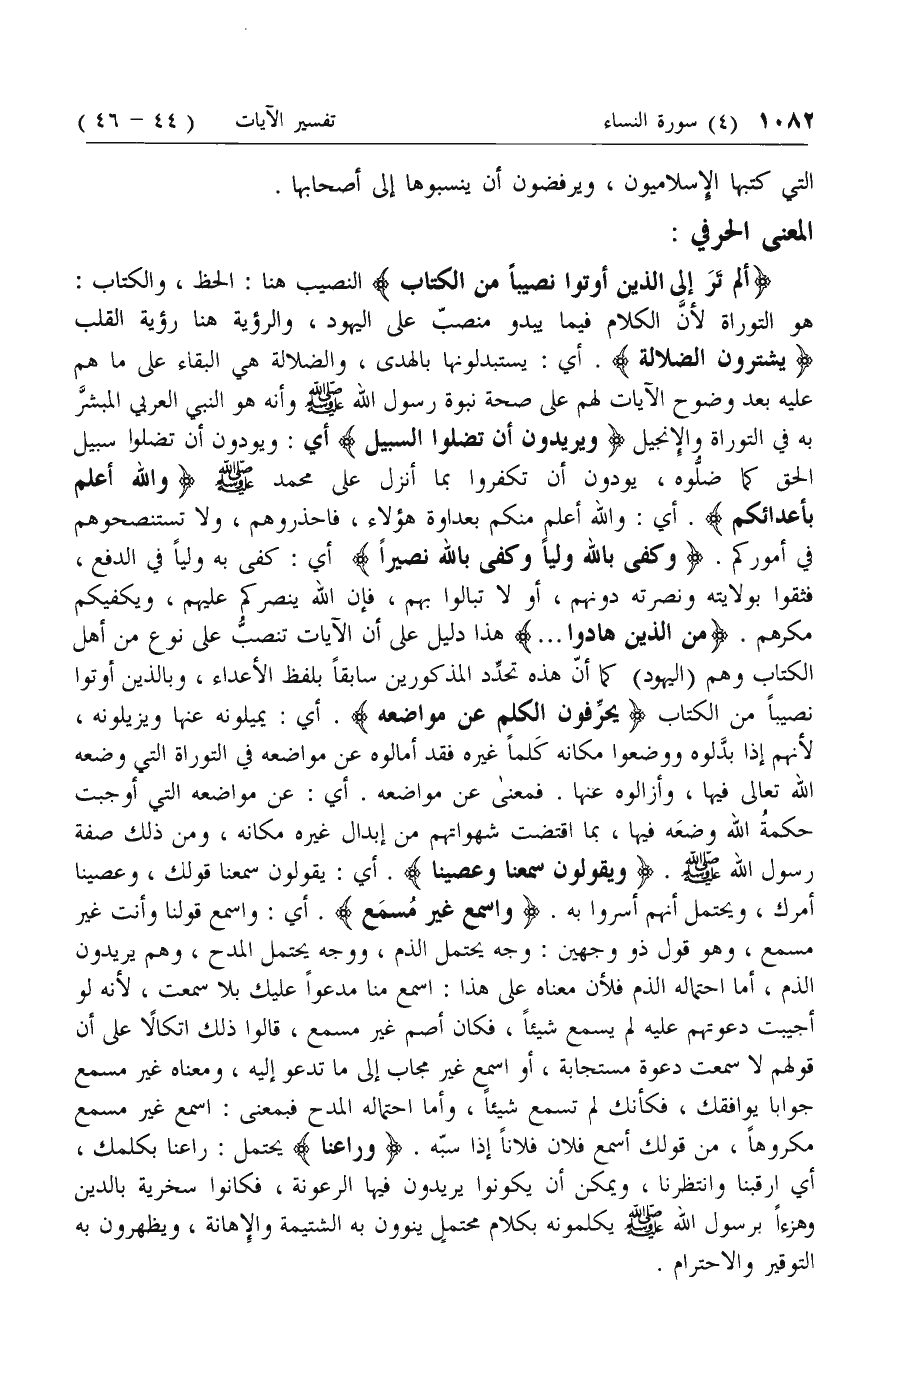 ١٠٨٢ (٤) سورة النساء تفسير الآيات ( ٤٤ – ٤٦ )
التي كتبها الإسلاميون ، ويرفضون أن ينسبوها إلى أصحابها .
المعنى الحرفي :
﴿ألم تَرَ إلى الذين أوتوا نصيباً من الكتاب ﴾ النصيب هنا : الحظ ، والكتاب :
هو التوراة لأنَّ الكلام فيما يبدو منصبّ على اليهود ، والرؤية هنا رؤية القلب
﴿ يشترون الضلالة ﴾ . أي : يستبدلونها بالهدى ، والضلالة هي البقاء على ما هم
عليه بعد وضوح الآيات لهم على صحة نبوة رسول الله ﷺ وأنه هو النبي العربي المبشَّر
به في التوراة والإنجيل ﴿ ويريدون أن تضلوا السبيل ﴾ أي : ويودون أن تضلوا سبيل
الحق كما ضلُّوه ، يودون أن تكفروا بما أنزل على محمد ﷺ ﴿ والله أعلم
بأعدائكم ﴾ . أي : والله أعلم منكم بعداوة هؤلاء ، فاحذروهم ، ولا تستنصحوهم
في أموركم . ﴿ وكفى بالله ولياً وكفى بالله نصيراً ﴾ أي : كفى به ولياً في الدفع ،
فثقوا بولايته ونصرته دونهم ، أو لا تبالوا بهم ، فإن الله ينصركم عليهم ، ويكفيكم
مكرهم . ﴿من الذين هادوا ...﴾ هذا دليل على أن الآيات تنصبُّ على نوع من أهل
الكتاب وهم (اليهود) كما أنّ هذه تحدِّد المذكورين سابقاً بلفظ الأعداء ، وبالذين أوتوا
نصيباً من الكتاب ﴿ يحرِّفون الكلم عن مواضعه ﴾ . أي : يميلونه عنها ويزيلونه ،
لأنهم إذا بدَّلوه ووضعوا مكانه كَلماً غيره فقد أمالوه عن مواضعه في التوراة التي وضعه
الله تعالى فيها ، وأزالوه عنها . فمعنىٰ عن مواضعه . أي : عن مواضعه التي أوجبت
حكمةُ الله وضعَه فيها ، بما اقتضت شهواتهم من إبدال غيره مكانه ، ومن ذلك صفة
رسول الله ﷺ . ﴿ ويقولون سمعنا وعصينا ﴾ . أي : يقولون سمعنا قولك ، وعصينا
أمرك ، ويحتمل أنهم أسروا به . ﴿ واسمع غير مُسمَع ﴾ . أي : واسمع قولنا وأنت غير
مسمع ، وهو قول ذو وجهين : وجه يحتمل الذم ، ووجه يحتمل المدح ، وهم يريدون
الذم ، أما احتماله الذم فلأن معناه على هذا : اسمع منا مدعواً عليك بلا سمعت ، لأنه لو
أجيبت دعوتهم عليه لم يسمع شيئاً ، فكان أصم غير مسمع ، قالوا ذلك اتكالًا على أن
قولهم لا سمعت دعوة مستجابة ، أو اسمع غير مجاب إلى ما تدعو إليه ، ومعناه غير مسمع
جوابا يوافقك ، فكأنك لم تسمع شيئاً ، وأما احتماله المدح فبمعنى : اسمع غير مسمع
مكروهاً ، من قولك أسمع فلان فلاناً إذا سبّه . ﴿ وراعنا ﴾ يحتمل : راعنا بكلمك ،
أي ارقبنا وانتظرنا ، ويمكن أن يكونوا يريدون فيها الرعونة ، فكانوا سخرية بالدين
وهزءاً برسول الله ﷺ يكلمونه بكلام محتملٍ ينوون به الشتيمة والإهانة ، ويظهرون به
التوقير والاحترام .